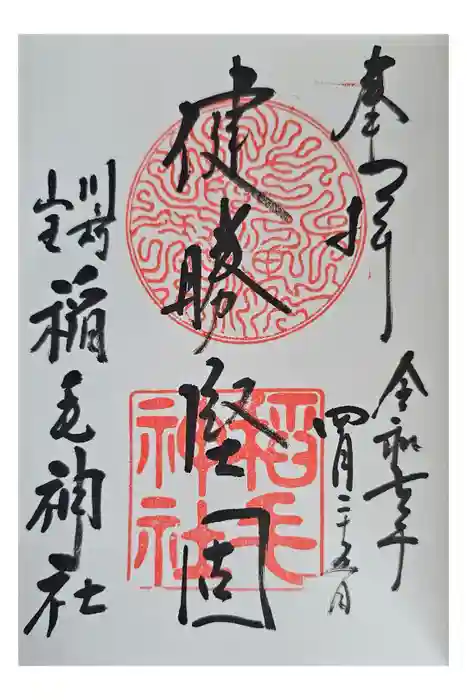 奉拝
令和七年
四月二十五日
健勝堅固
川崎
山王
稲毛神社
稲毛
神社